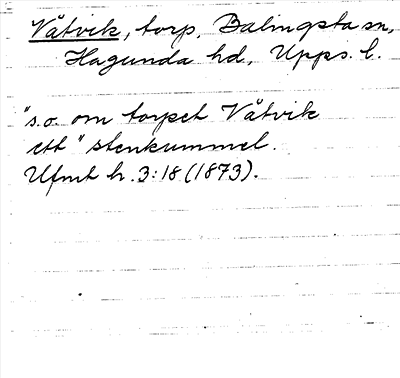 Våtvik, torp, Balingsta sn,
Hagunda hd, Upps. l.
"s.o. om torpet Våtvik
ett" stenkummel.
Ufmt h. 3:18 (1873).